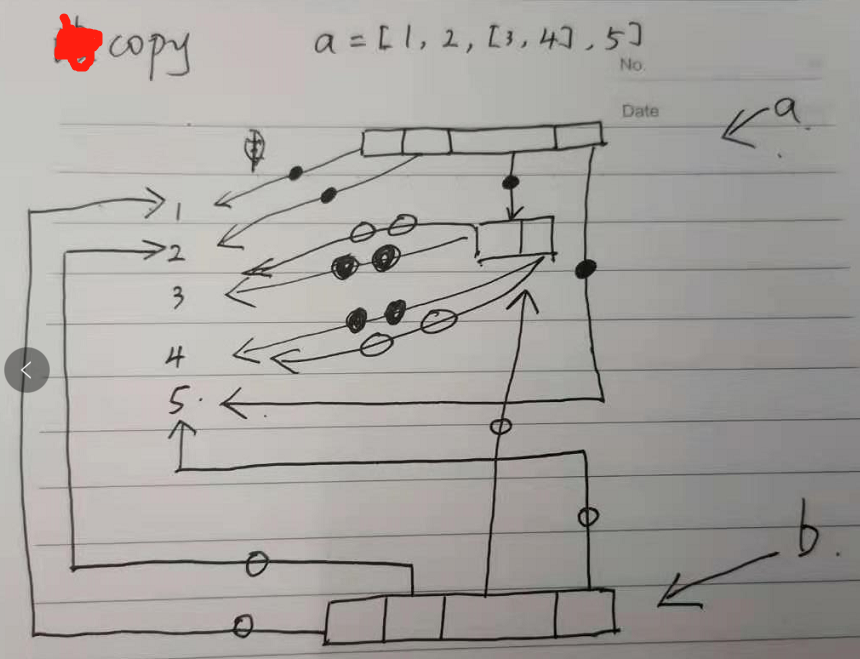 copy a = [1, 2, [3, 4], 5]
No.
Date
a
1
2
3
4
5
b.